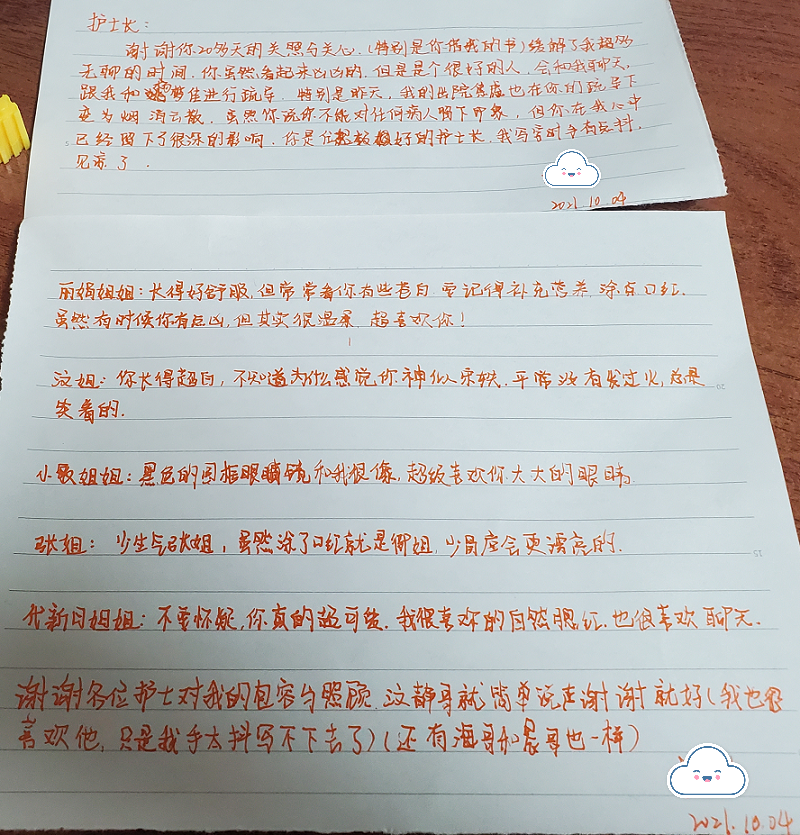 护士长:
谢谢你20多天的关照与关心,(特别是你借我的书)缓解了我超多
无聊的时间,你虽然看起来凶凶的,但是是个很好的人,会和我聊天,
跟我和佳进行疏导,特别是昨天,我的出院焦虑也在你的疏导下
变为烟消云散,虽然你说你不能对任何病人留下印象,但你在我心中
已经留下了很深的影响,你是位超级好的护士长,我写字时手有点抖,
见谅了.
2021.10.04
丽娟姐姐:长得好舒服,但常常看你有些苍白,要记得补充营养,涂点口红.
虽然有时候你有点凶,但其实很温柔,超喜欢你!
汶姐:你长得超白,不知道为什么感觉你神似宋轶,平常没有发过火,总是
笑着的.
小歌姐姐:黑色的圆框眼睛镜和我很像,超级喜欢你大大的眼睛
张姐:少生气张姐,虽然涂了口红就是御姐,少骂应会更漂亮的.
代新月姐姐:不要怀疑,你真的超可爱.我很喜欢的自然腮红.也很喜欢聊天.
谢谢各位护士对我的包容与照顾,汶静哥就简单说声谢谢就好(我也很
喜欢他,只是我手太抖写不下去了)(还有海哥和哥也一样)
2021.10.04